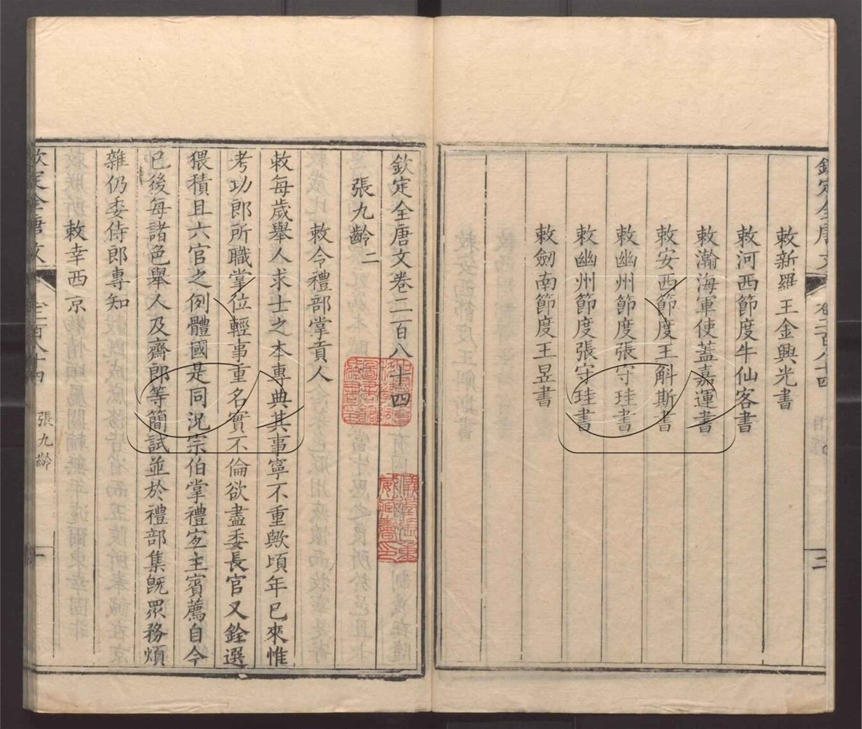 欽定全唐文
二
敕新羅王金興光書
敕河西節度牛仙客書
敕瀚海軍使蓋嘉運書
敕安西節度王斛斯書
敕幽州節度張守珪書
敕幽州節度張守珪書
敕劍南節度王昱書
欽定全唐文卷二百八十四
張九齡二
敕令禮部掌貢人
敕每歲舉人求士之本專典其事寧不重歟頃年已來惟
考功郎所職掌位輕事重名實不倫欲盡委長官又銓選
猥積且六官之例體國是同況宗伯掌禮宜主賓薦自今
已後每諸色舉人及齋郎等簡試並於禮部集既眾務煩
雜仍委侍郎專知
敕幸西京
欽定全唐文
張九齡
一